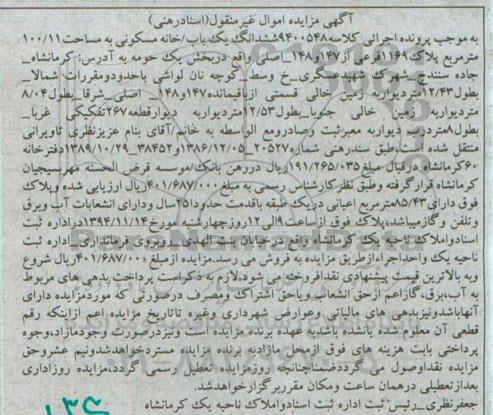 آگهی مزایده اموال غیرمنقول(اسنادرهنی)
به موجب پرونده اجرائی کلاسه۹۴۰۰۵۴۸ششدانگ یک باب/خانه مسکونی به مساحت۱۰۰/۱۱
مترمربع پلاک۱۱۶۹فرعی از۱۴۷و۱۴۸_اصلی واقع دربخش یک حومه به آدرس: کرمانشاه_
جاده سنندج_شهرک شهیدعسگری_خ وسط_کوچه نان لواشی باحدودومقررات:شمالا_
بطول۱۲/۴۳متردیواربه زمین خالی قسمتی ازباقیمانده۱۴۷و۱۴۸_ اصلی_شرقا_بطول۸/۰۴
متردیواربه زمین خالی جنوبا_بطول۱۲/۵۳متردیواربه دیوارقطعه۲۶۷تفکیکی غربا_
بطول۸متردرب دیواربه معبرثبت وصادرومع الواسطه به خانم/آقای بنام عزیزنظری تاویرانی
منتقل شده است،طبق سندرهنی شماره۲۰۵۲۷_۱۳۸۶/۱۲/۰۵و۳۸۴۵۲_۱۳۸۹/۱۰/۲۹دفترخانه
۶۰کرمانشاه درقبال مبلغ۱۹۱/۲۶۵/۰۳۵ریال دررهن بانک/موسسه قرض الحسنه مهربسیجیان
کرمانشاه قرارگرفته وطبق نظرکارشناس رسمی به مبلغ۴۰۱/۶۸۷/۰۰۰ریال ارزیابی شده وپلاک
فوق دارای۸۵/۴۳مترمربع اعیانی دریک طبقه باقدمت حدودا۲۵سال ودارای انشعابات آب وبرق
وتلفن وگازمیباشد،پلاک فوق ازساعت۹الی۱۲روزچهارشنبه مورخ۱۳۹۴/۱۱/۱۴دراداره ثبت
اسنادواملاک ناحیه یک کرمانشاه واقع درخیابان بنت الهدی_روبروی فرمانداری_اداره ثبت
ناحیه یک واحداجراءازطریق مزایده به فروش می رسد.مزایده ازمبلغ۴۰۱/۶۸۷/۰۰۰ریال شروع
وبه بالاترین قیمت پیشنهادی نقدافروخته می شود،لازم به ذکراست پرداخت بدهی های مربوط
به آب،برق،گازاعم ازحق انشعاب ویاحق اشتراک ومصرف درصورتی که موردمزایده دارای
آنهاباشدونیزبدهی های مالیاتی وعوارض شهرداری وغیره تاتاریخ مزایده اعم ازاینکه رقم
قطعی آن معلوم شده یانشده باشدبه عهده برنده مزایده است ونیزدرصورت وجودمازاد،وجوه
پرداختی بابت هزینه های فوق ازمحل مازادبه برنده مزایده مستردخواهدشدونیم عشروحق
مزایده نقداوصول می گرددضمناچنانچه روزمزایده تعطیل رسمی گردد،مزایده روزاداری
بعدازتعطیلی درهمان ساعت ومکان مقرربرگزارخواهدشد.
جعفرنظری_رئیس ثبت اداره ثبت اسنادواملاک ناحیه یک کرمانشاه